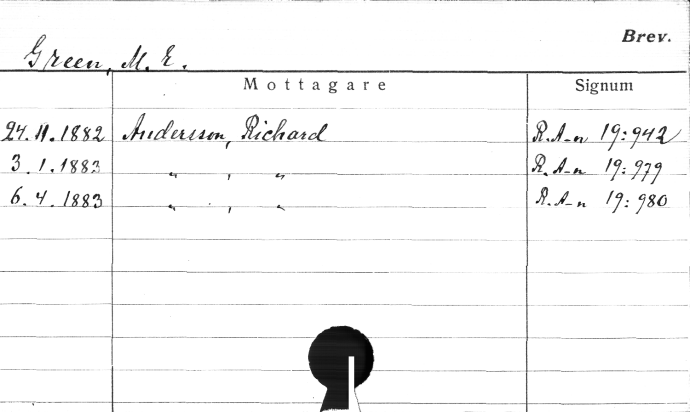 Brev.
Green, M. E.
Mottagare Signum
24.11.1882 Andersson, Richard R. A-n 19:942
3.1.1883 " , " R. A-n 19:979
6.4.1883 " , " R. A-n 19:980